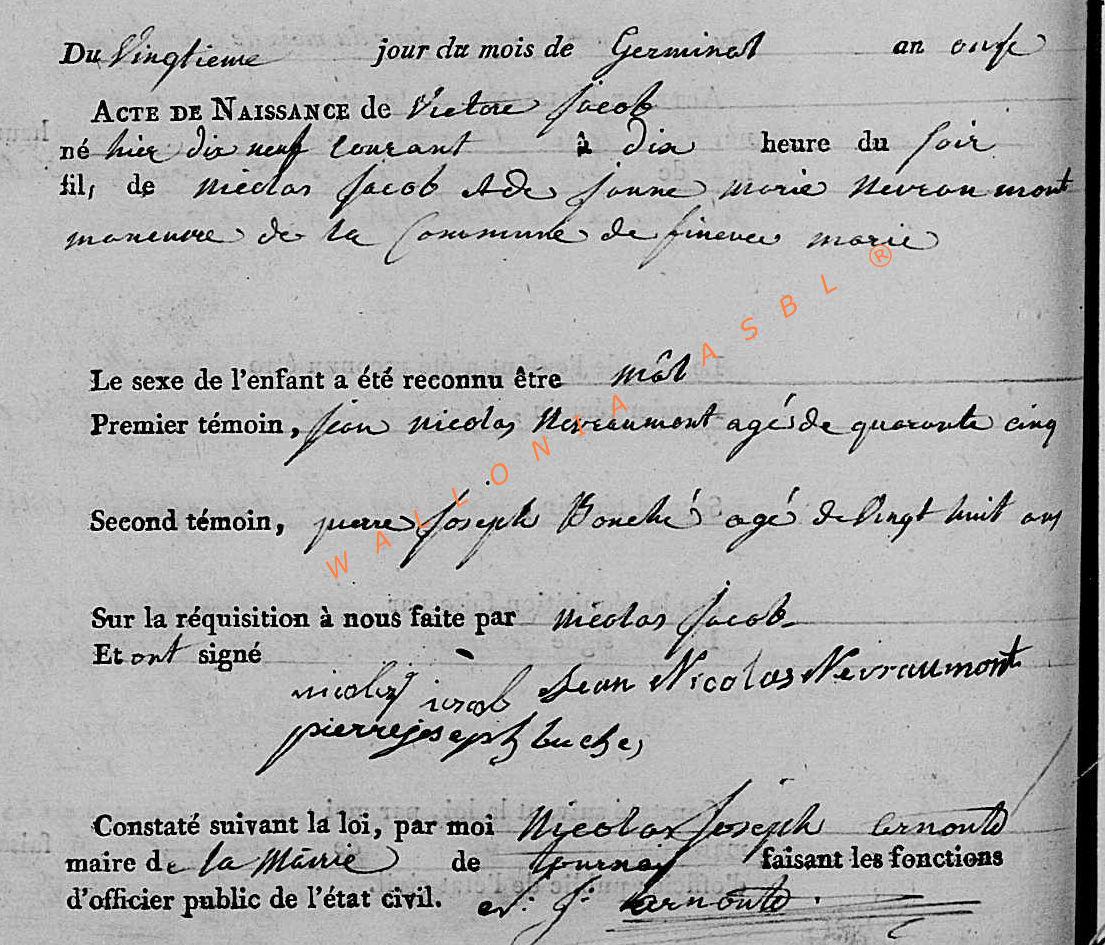 Du Vingtieme jour du mois de Germinal an onze
ACTE DE NAISSANCE de Victore Jacob
né hier dix neuf Courant à dix heure du soir
fils de Nicolas Jacob & de Jenne Marie Nevraumont
maneuvre de la Commune de marie
Le sexe de l'enfant a été reconnu être mâl
Premier témoin, Jean Nicolas Nevraumont agés de quarante cinq
Second témoin, pierre Joseph Bouché agé de Vingt huit ans
Sur la réquisition à nous faite par Nicolas Jacob
Et ont signé
nicolas iacob Jean Nicolas Nevraumont
pierre joseph buche
Constaté suivant la loi, par moi Nicolas Joseph arnould
maire de la Mairie de tournay faisant les fonctions
d'officier public de l'état civil. N. J. arnould.
WALLONIA ASBL ®